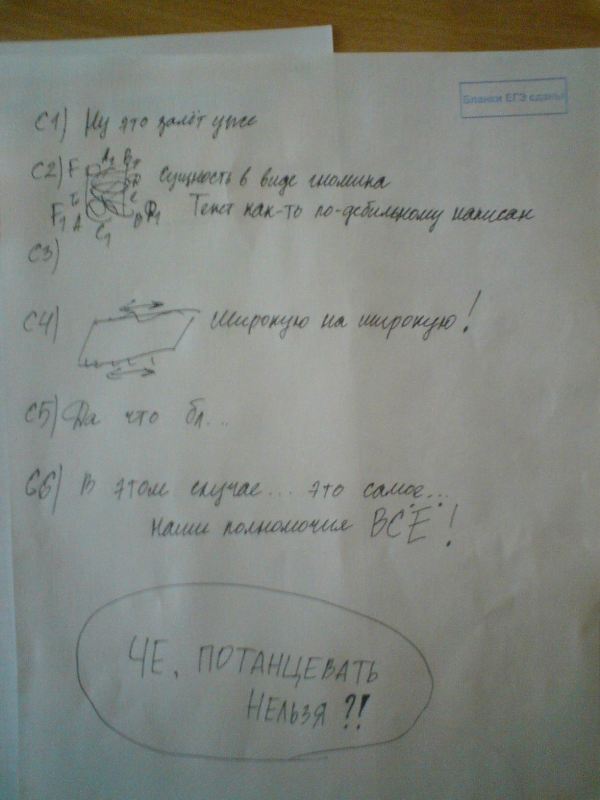 Бланки ЕГЭ сданы
С1) Ну это залёт уже
С2) F A₁ B₁ Сущность в виде гномика
F₁ A C₁ B Текст как-то по-дебильному написан
С3)
С4) Широкую на широкую!
С5) Да что бл...
С6) В этом случае... это самое...
наши полномочия ВСЁ!
ЧЕ, ПОТАНЦЕВАТЬ
НЕЛЬЗЯ?!